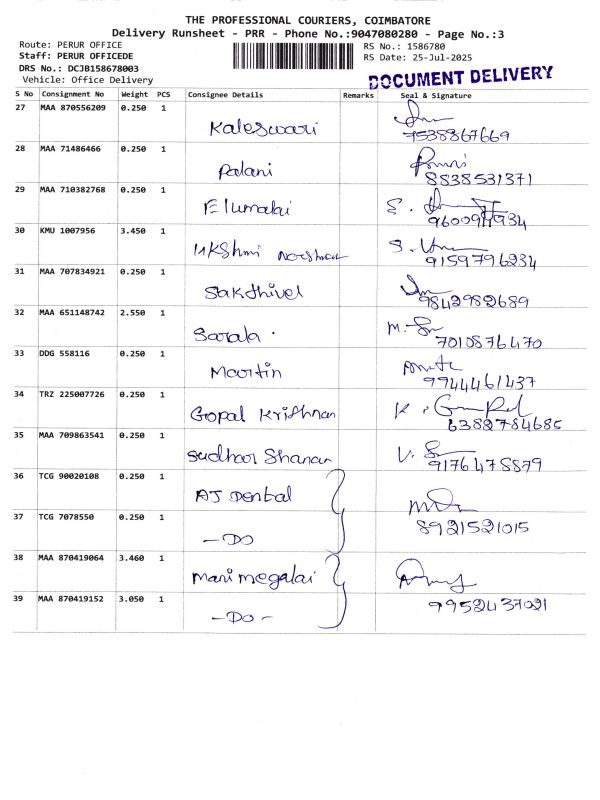 THE PROFESSIONAL COURIERS, COIMBATORE
Delivery Runsheet - PRR - Phone No.:9047080280 - Page No.:3
Route: PERUR OFFICE RS No.: 1586780
Staff: PERUR OFFICEDE RS Date: 25-Jul-2025
DRS No.: DCJB158678003
Vehicle: Office Delivery
DOCUMENT DELIVERY
S No Consignment No Weight PCS Consignee Details Remarks Seal & Signature
27 MAA 870556209 0.250 1
Kaleswari 7538867669
28 MAA 71486466 0.250 1
Palani 8838531371
29 MAA 710382768 0.250 1
Elumalai
30 KMU 1007956 3.450 1
9159796234
31 MAA 707834921 0.250 1
Sakthivel 9842982689
32 MAA 651148742 2.550 1
Sarala. 7010876470
33 DDG 558116 0.250 1
Maartin 9944461437
34 TRZ 225007726 0.250 1
Gopal Krishnan 6382784685
35 MAA 709863541 0.250 1
Sudhar Shanan 9176478879
36 TCG 90020108 0.250 1
AJ Dental
37 TCG 7078550 0.250 1
8921521015
-Do
38 MAA 870419064 3.460 1
Mani megalai
39 MAA 870419152 3.050 1
9952437021
-Do-